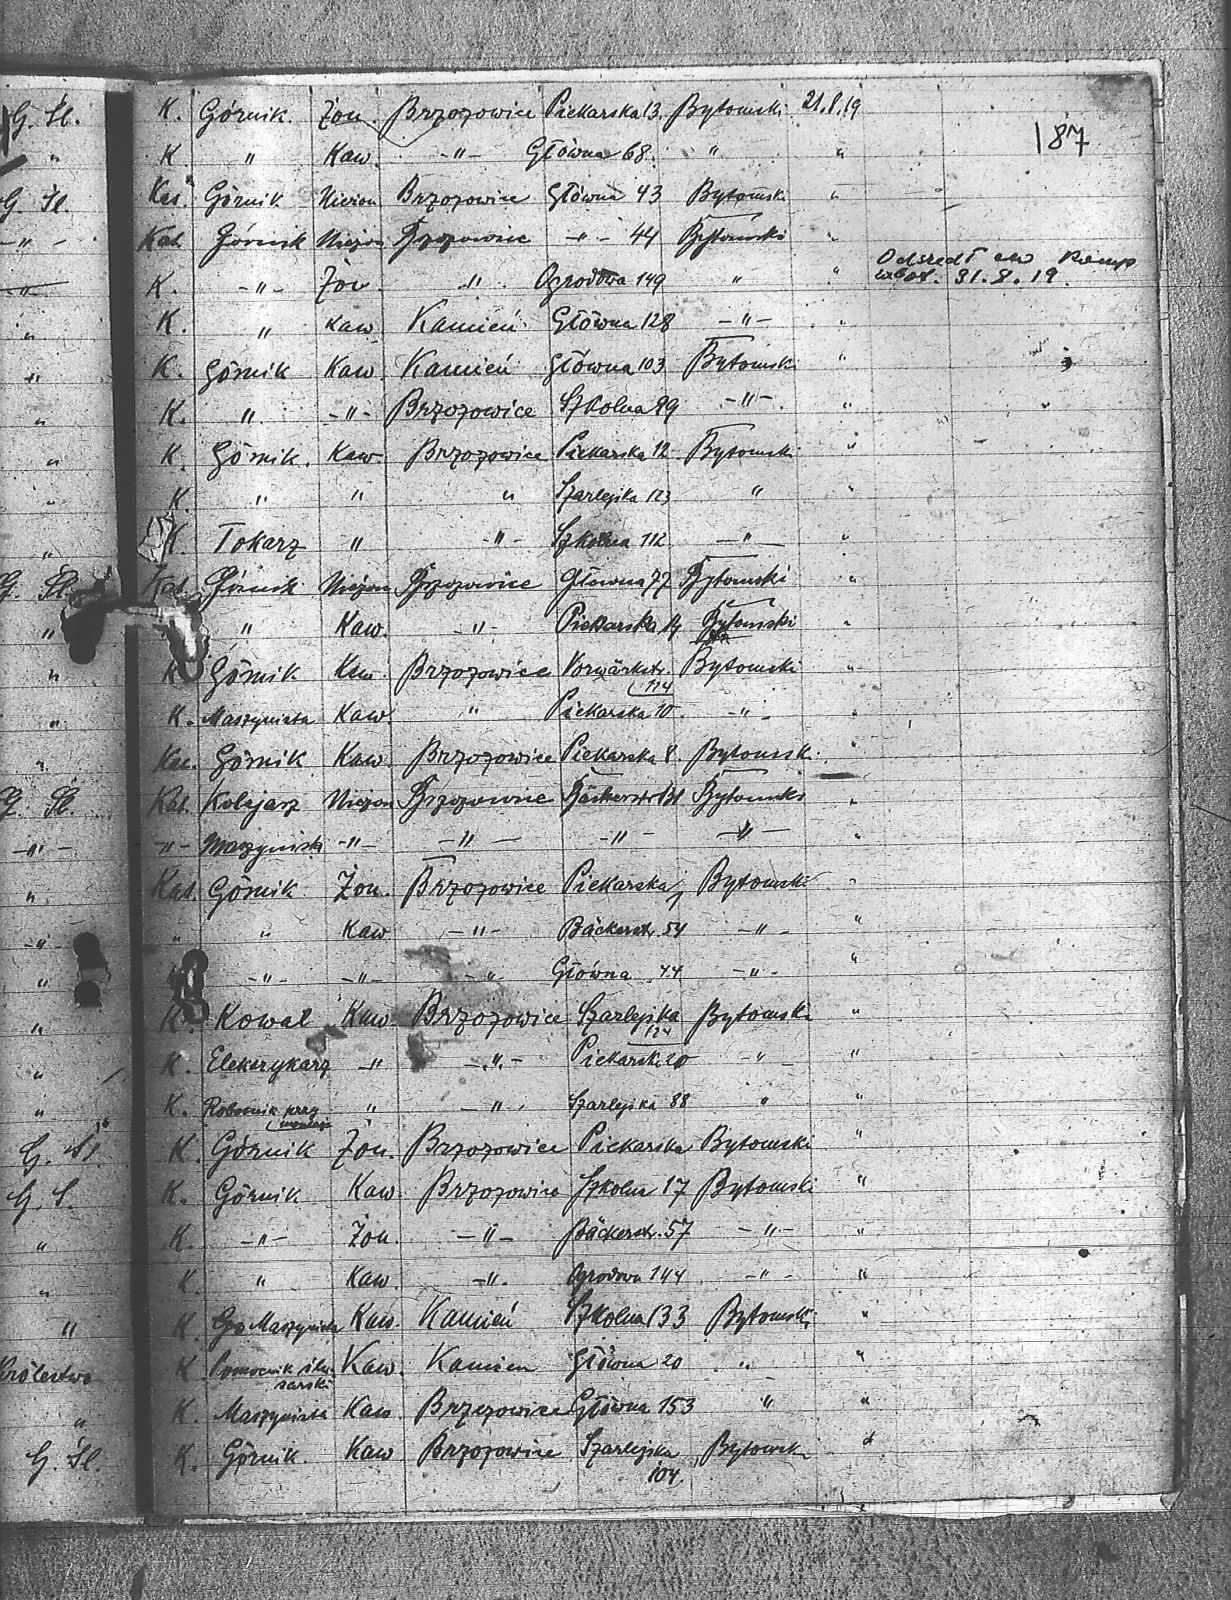 G. Śl. K. Górnik Żon. Brzozowice Piekarska 13. Bytomski 21.8.19
187
" K. " Kaw. -"- Główna 68. " "
G. Śl. Kat. Górnik Nieżon Brzozowice Główna 43 Bytomski "
-"- Kat. Górnik Nieżon Brzozowice -"- 44 Bytomski "
-"- K. -"- Żon. -"- Ogrodowa 149 " " Odszedł
31.8.19.
" K. " Kaw Kamień Główna 128 -"- "
" K. Górnik Kaw. Kamień Główna 103 Bytomski "
" K. " -"- Brzozowice Szkolna 99 -"- "
" K. Górnik. Kaw. Brzozowice Piekarska 12 Bytomski "
K. " " " Szarlejska 123 " "
" K. Tokarz " -"- Szkolna 112 -"- "
G. Śl. Kat. Górnik Nieżon Brzozowice Główna 77 Bytomski "
" " Kaw. -"- Piekarska 14 Bytomski "
" K Górnik Kaw. Brzozowice Vorwärkstr. Bytomski "
124
" K. Maszynista Kaw. " Piekarska 10. -"- "
" Kat. Górnik Kaw. Brzozowice Piekarska 8. Bytomsk. "
G. Śl. Kat. Kolejarz Nieżon Brzozowice Bäckerstr 51 Bytomski "
-"- -"- Maszynista -"- -"- -"- -"- "
" Kat. Górnik Żon. Brzozowice Piekarska 1 Bytomski "
-"- " " Kaw -"- Bäckerstr. 54 -"- "
" -"- -"- -"- Główna 44 -"- "
" K. Kowal Kaw. Brzozowice Szarlejska Bytomski "
124
" K. Elekerykarz -"- -"- Piekarsk. 20 -"- "
" K. Robotnik przy " -"- Szarlejska 88 " "
montażu
G. Śl. K. Górnik Żon. Brzozowice Piekarska Bytomski "
G. S. K. Górnik Kaw Brzozowice Szkolna 17 Bytomski "
" K. -"- Żon. -"- Bäckerstr. 57 -"- "
" K. " Kaw. -"- Ogrodowa 144 -"- "
" K. Maszynista Kaw. Kamień Szkolna 133 Bytomski "
Królestwo K Pomocnik ślu- Kaw. Kamien Główna 20 " "
sarski
" K. Maszynista Kaw. Brzozowice Główna 153 " "
G. Śl. K. Górnik. Kaw Brzozowice Szarlejska Bytomsk "
104.